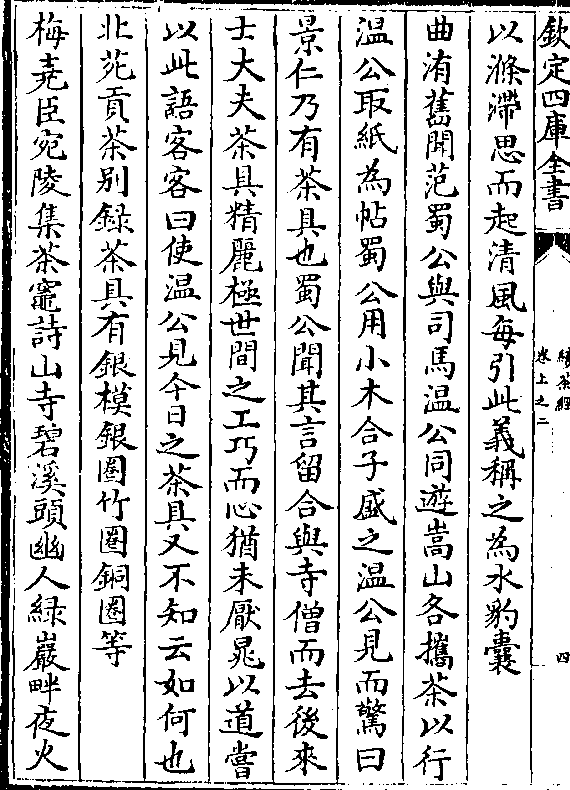 欽定四庫全書
續茶經
卷上之二
四
以滌滯思而起清風每引此義稱之為水豹囊
曲洧舊聞范蜀公與司馬温公同遊嵩山各攜茶以行
温公取紙為帖蜀公用小木合子盛之温公見而驚曰
景仁乃有茶具也蜀公聞其言留合與寺僧而去後來
士大夫茶具精麗極世間之工巧而心猶未厭晁以道嘗
以此語客客曰使温公見今日之茶具又不知云如何也
北苑貢茶别録茶具有銀模銀圏竹圏銅圏等
梅堯臣宛陵集茶竈詩山寺碧溪頭幽人緑巖畔夜火